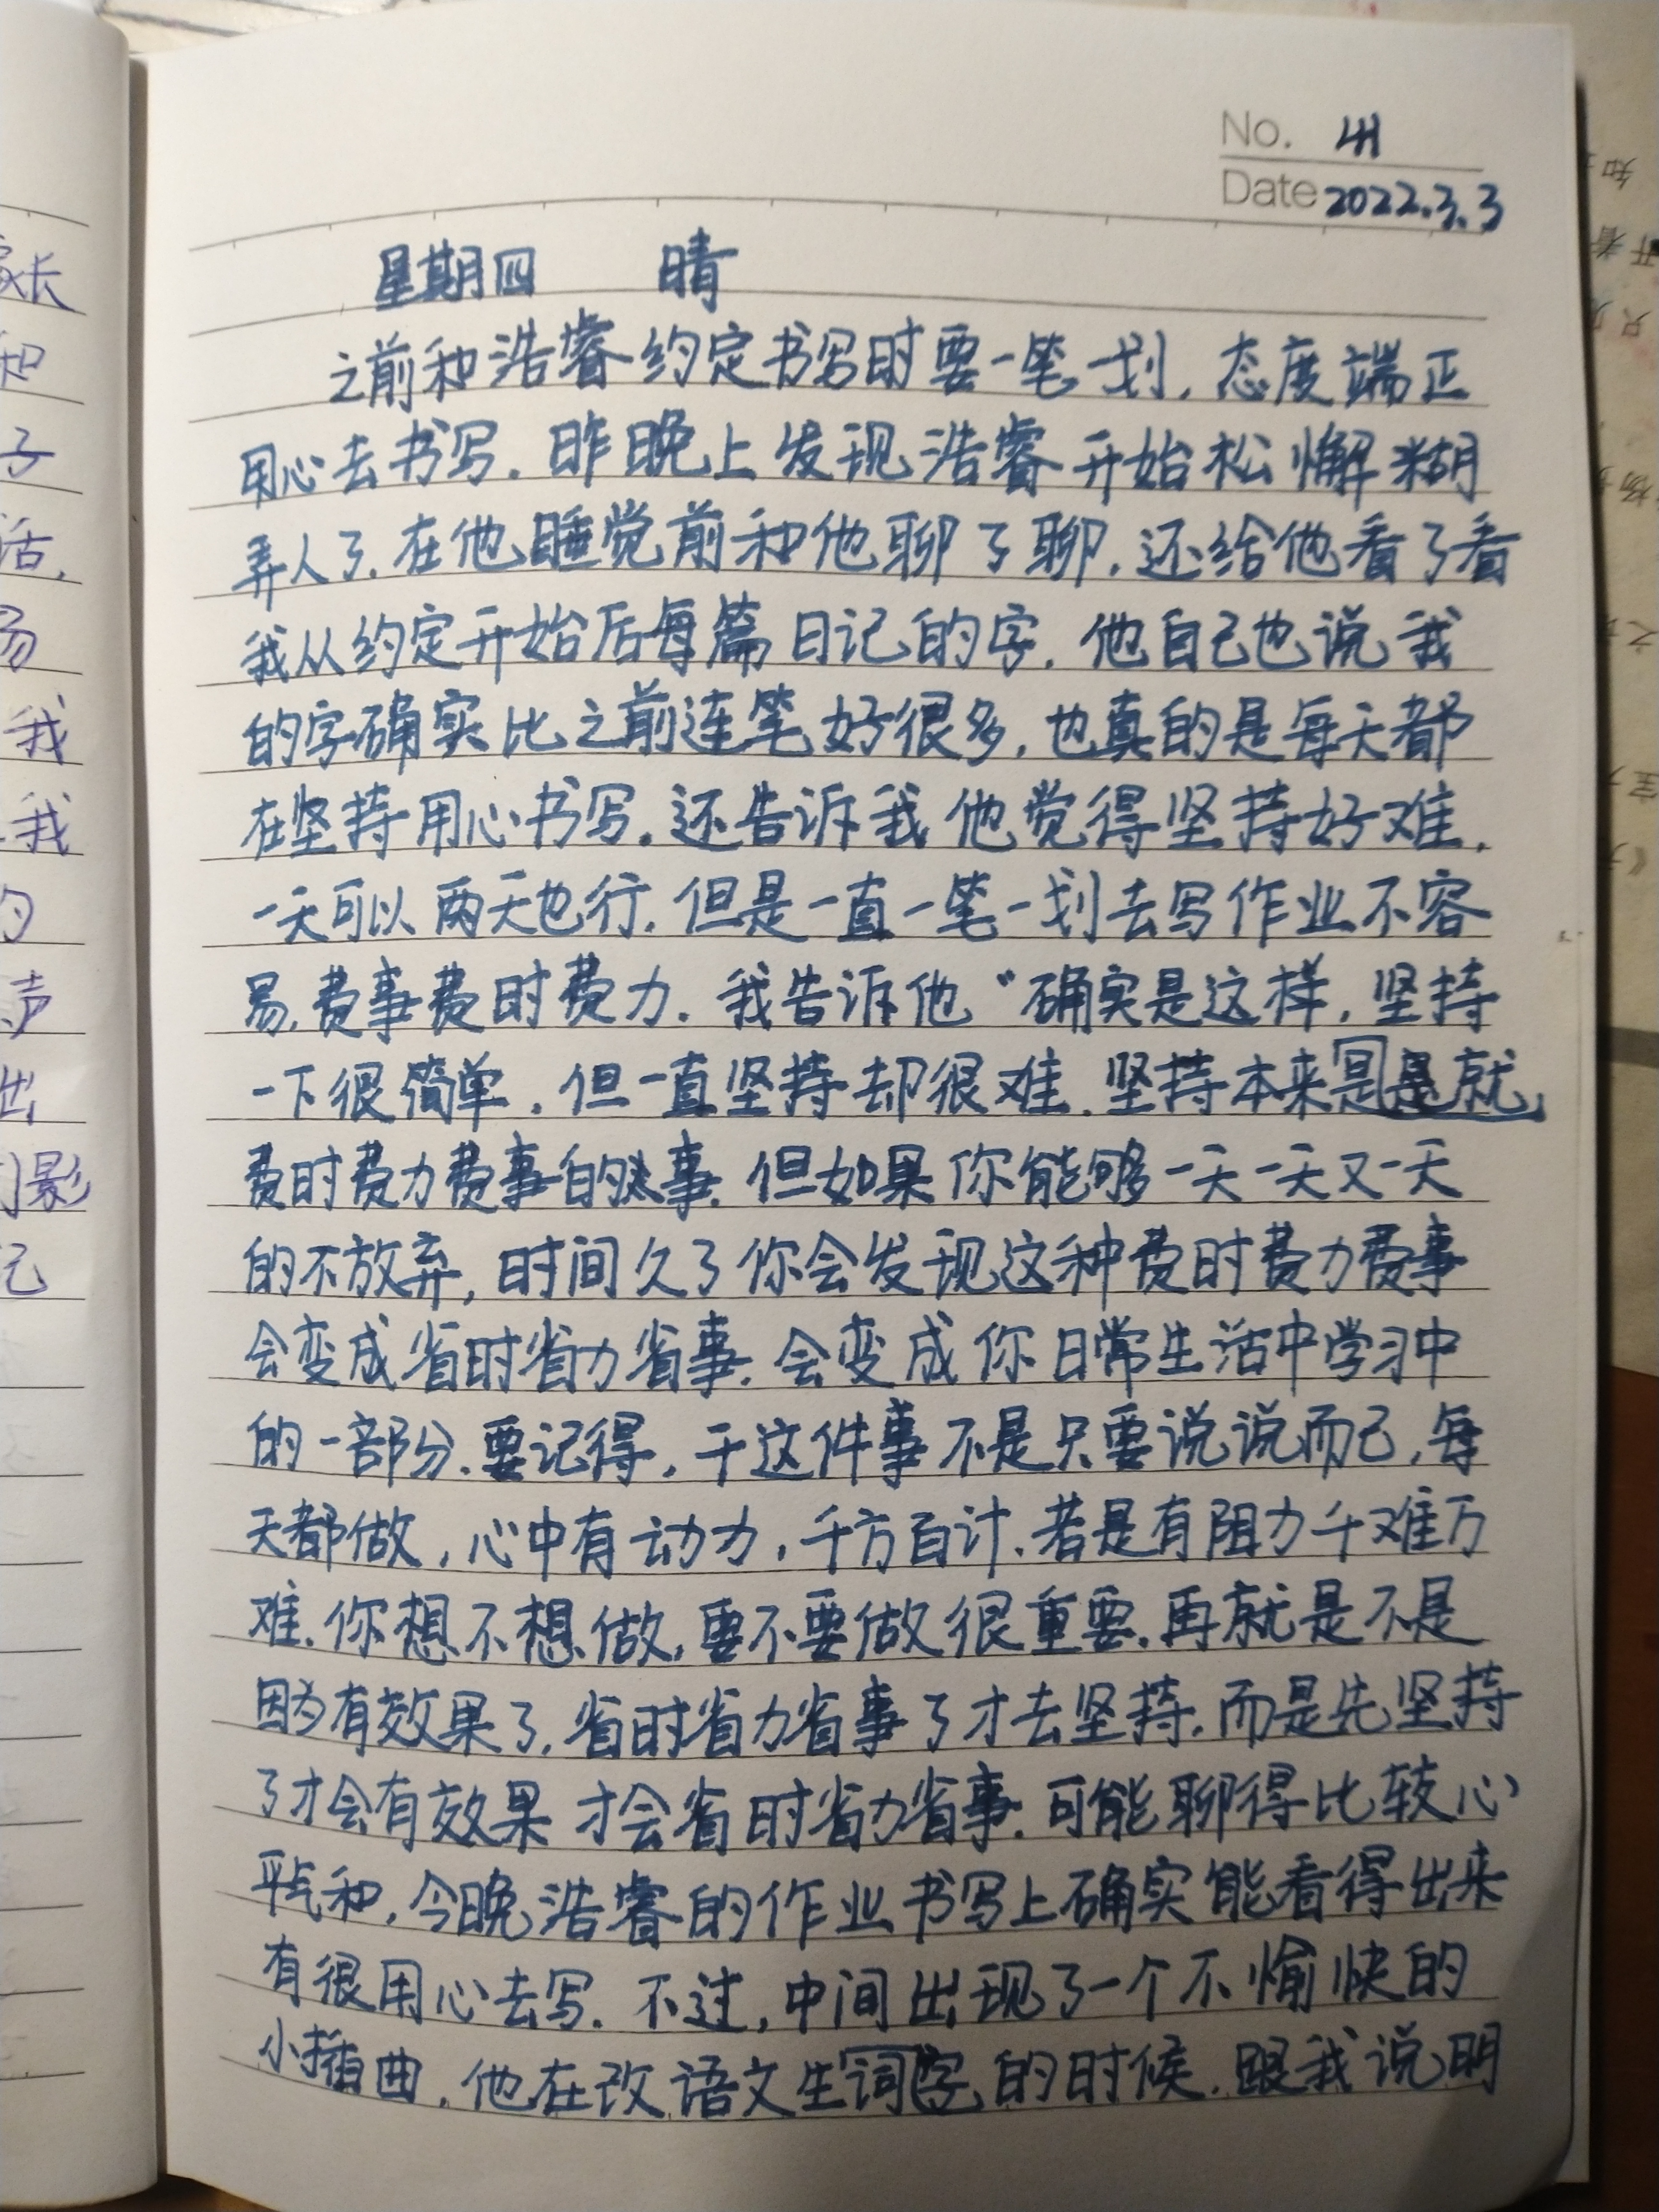 No.
Date 2022.3.3
星期四 晴
之前和浩睿约定书写时要一笔一划，态度端正
用心去书写.昨晚上发现浩睿开始松懈糊
弄人了.在他睡觉前和他聊了聊.还给他看了看
我从约定开始后每篇日记的字.他自己也说我
的字确实比之前连笔好很多,也真的是每天都
在坚持用心书写.还告诉我他觉得坚持好难.
一天可以两天也行.但是一直一笔一划去写作业不容
易.费事费时费力.我告诉他“确实是这样,坚持
一下很简单,但一直坚持却很难.坚持本来是就
费时费力费事的事.但如果你能够一天一天又一天
的不放弃,时间久了你会发现这种费时费力费事
会变成省时省力省事.会变成你日常生活中学习中
的一部分.要记得,干这件事不是只要说说而已,每
天都做,心中有动力,千方百计.若是有阻力千难万
难.你想不想做,要不要做很重要.再就是不是
因为有效果了,省时省力省事了才去坚持.而是先坚持
了才会有效果才会省时省力省事.可能聊得比较心
平气和,今晚浩睿的作业书写上确实能看得出来
有很用心去写.不过,中间出现了一个不愉快的
小插曲,他在改语文生词字的时候.跟我说明
家长
和
子
活,
易
我
我
的
声
出
影
记